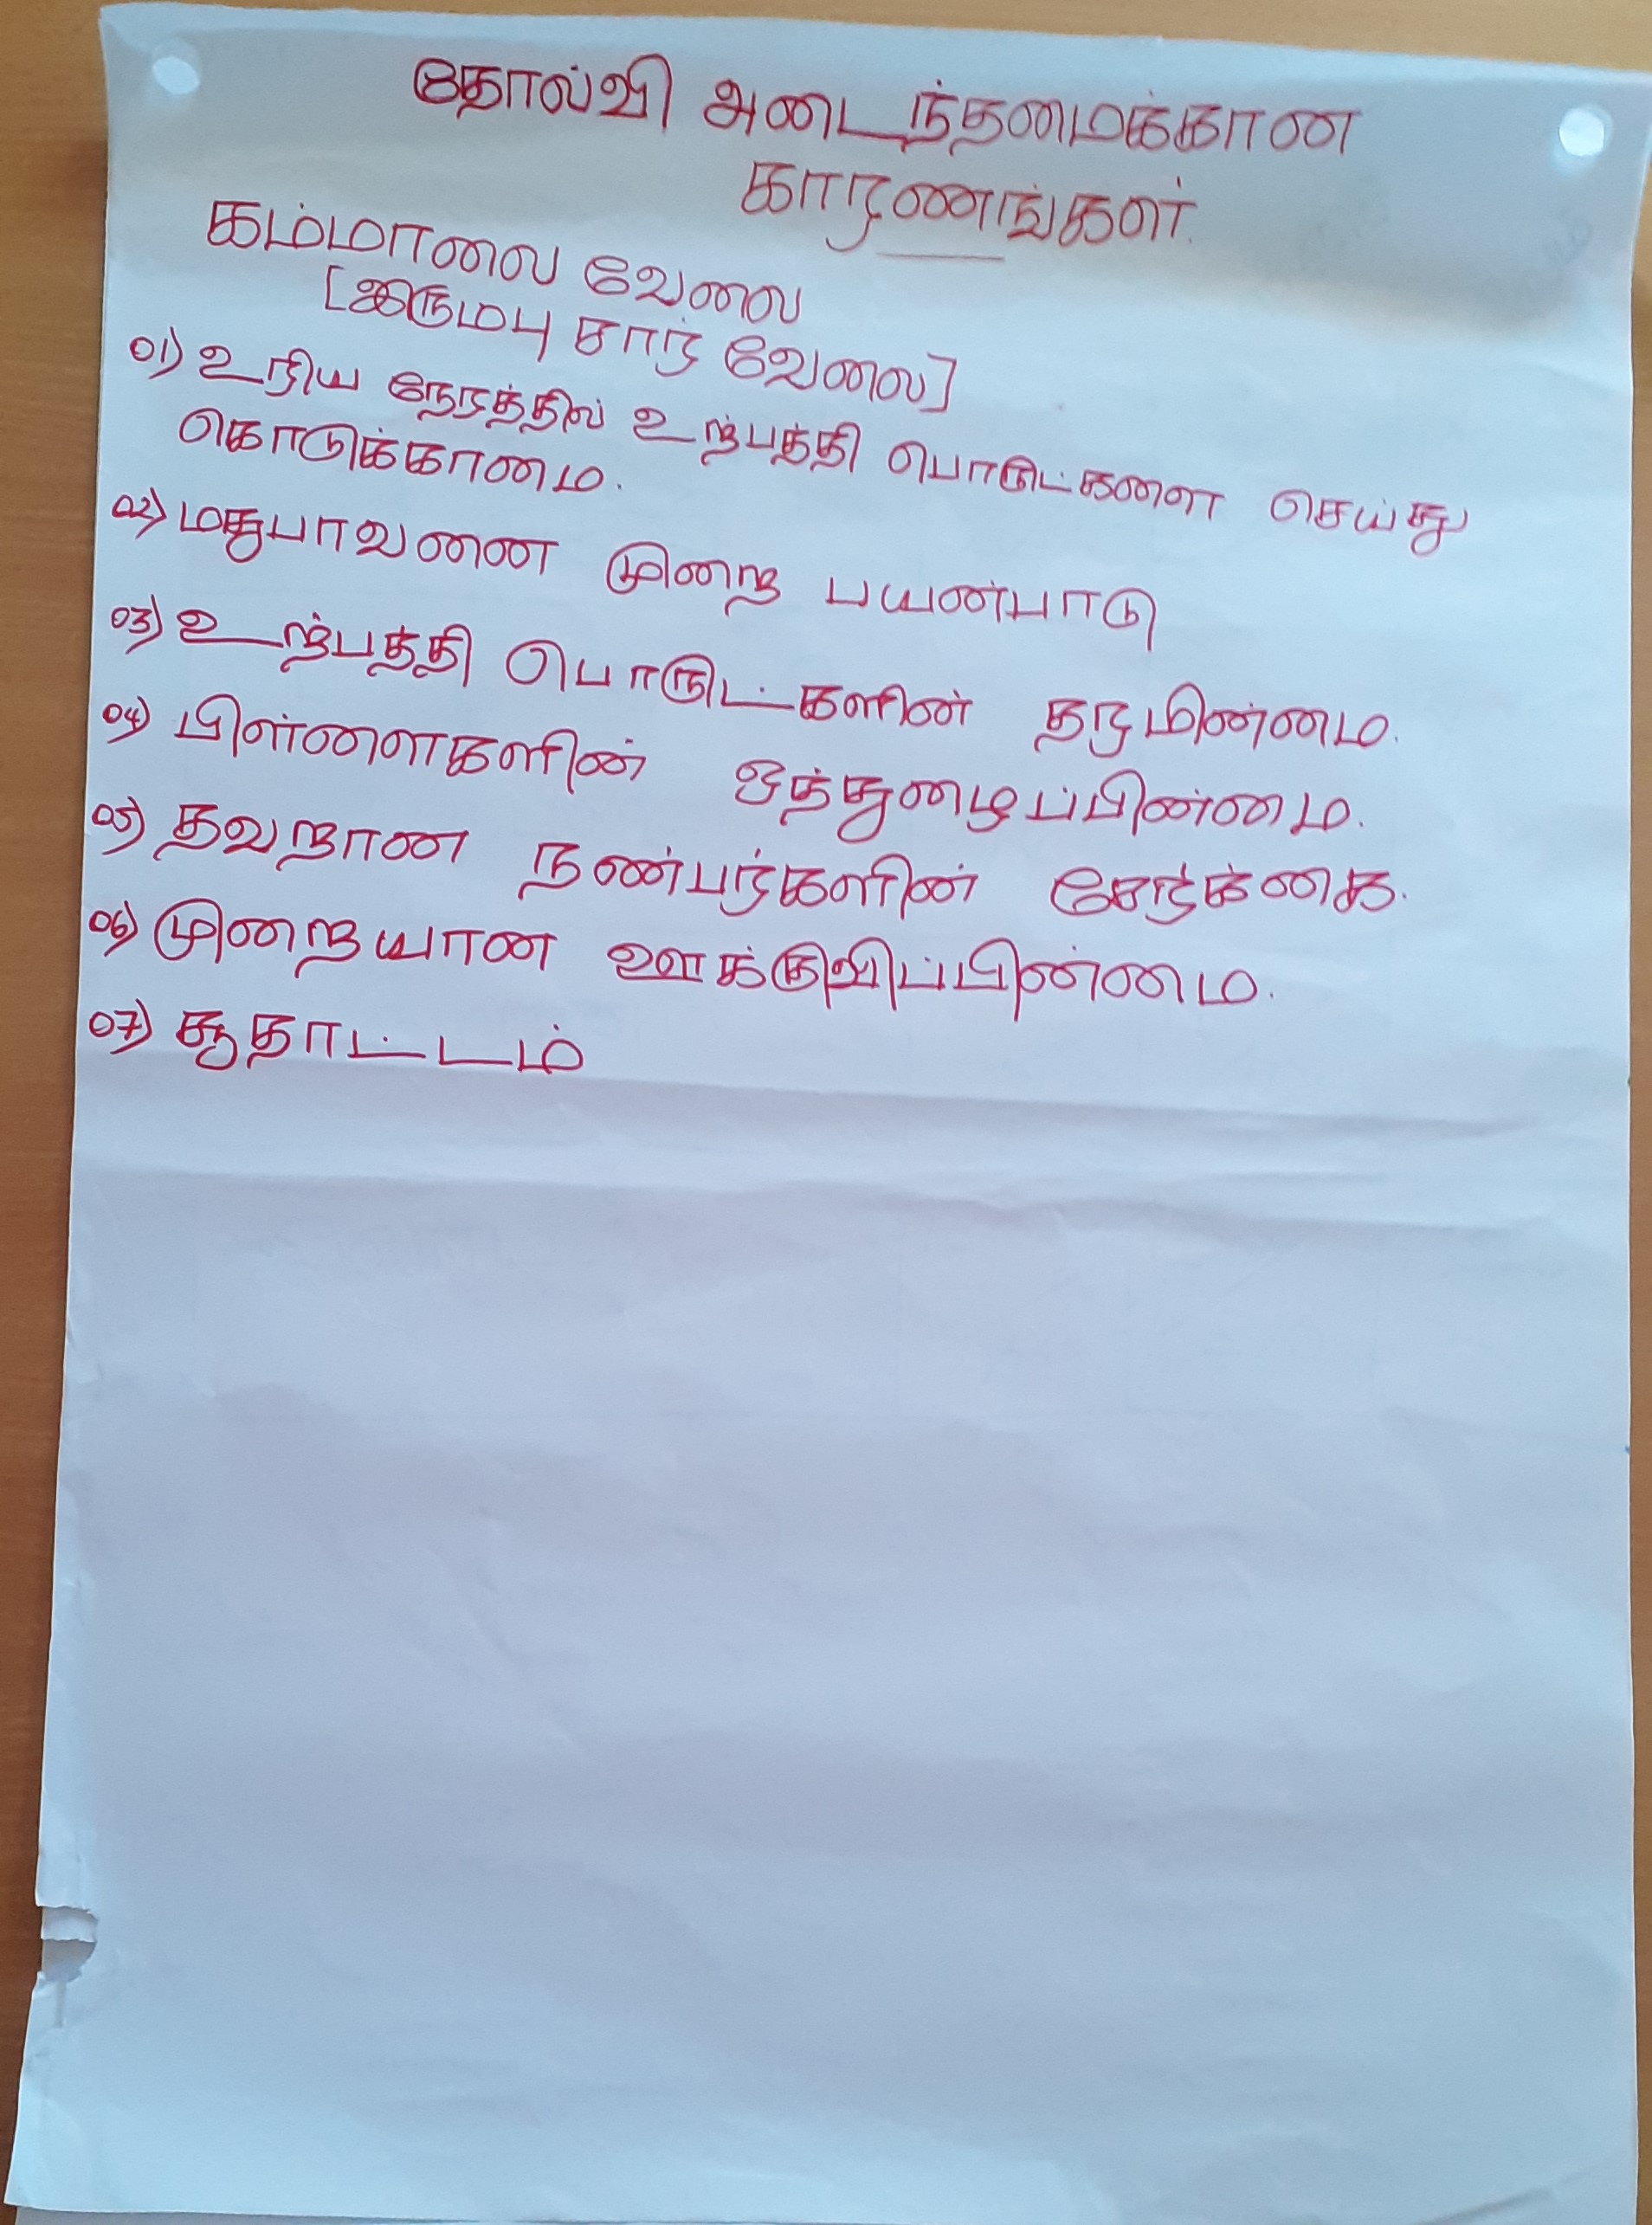 தோல்வி அடைந்தமைக்கான
காரணங்கள்.
கம்மாலை வேலை
[இரும்பு சார் வேலை]
01) உரிய நேரத்தில் உற்பத்தி பொருட்களை செய்து
கொடுக்காமை.
02) மதுபாவனை முறை பயன்பாடு
03) உற்பத்தி பொருட்களின் தரமின்மை.
04) பிள்ளைகளின் ஒத்துழைப்பின்மை.
05) தவறான நண்பர்களின் சேர்க்கை.
06) முறையான ஊக்குவிப்பின்மை.
07) சூதாட்டம்